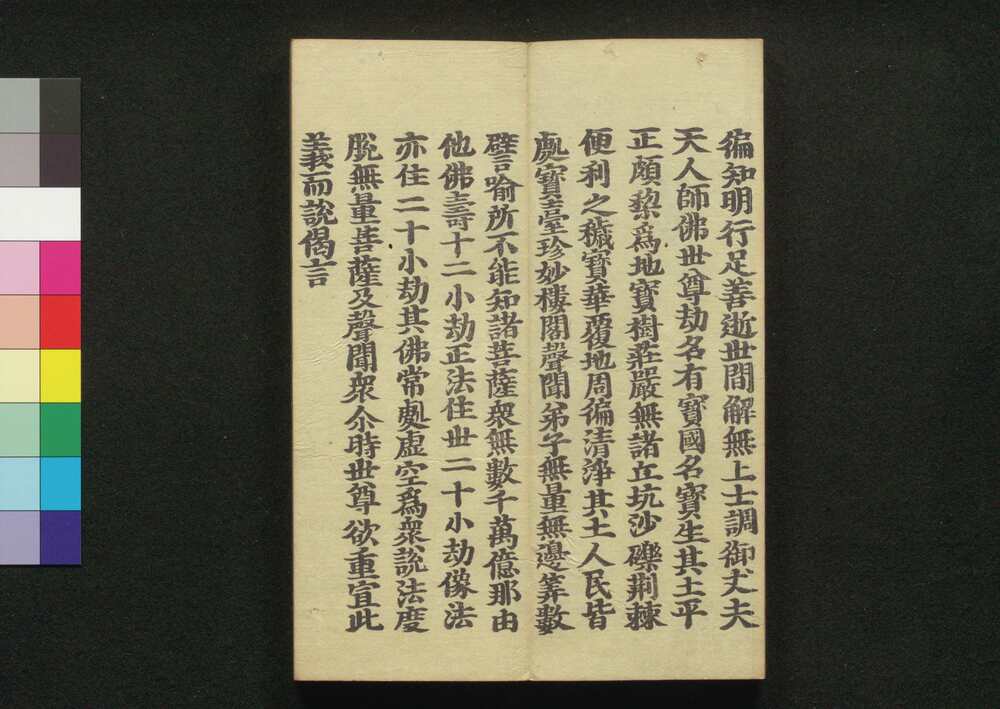 徧知明行足善逝世間解無上士調御丈夫
天人師佛世尊劫名有寶國名寶生其土平
正頗黎爲地寶樹莊嚴無諸丘坑沙礫荆棘
便利之穢寶華覆地周徧清淨其土人民皆
處寶臺珍妙樓閣聲聞弟子無量無邊筭數
譬喻所不能知諸菩薩衆無數千萬億那由
他佛壽十二小劫正法住世二十小劫像法
亦住二十小劫其佛常處虛空爲衆說法度
脫無量菩薩及聲聞衆尒時世尊欲重宣此
義而說偈言